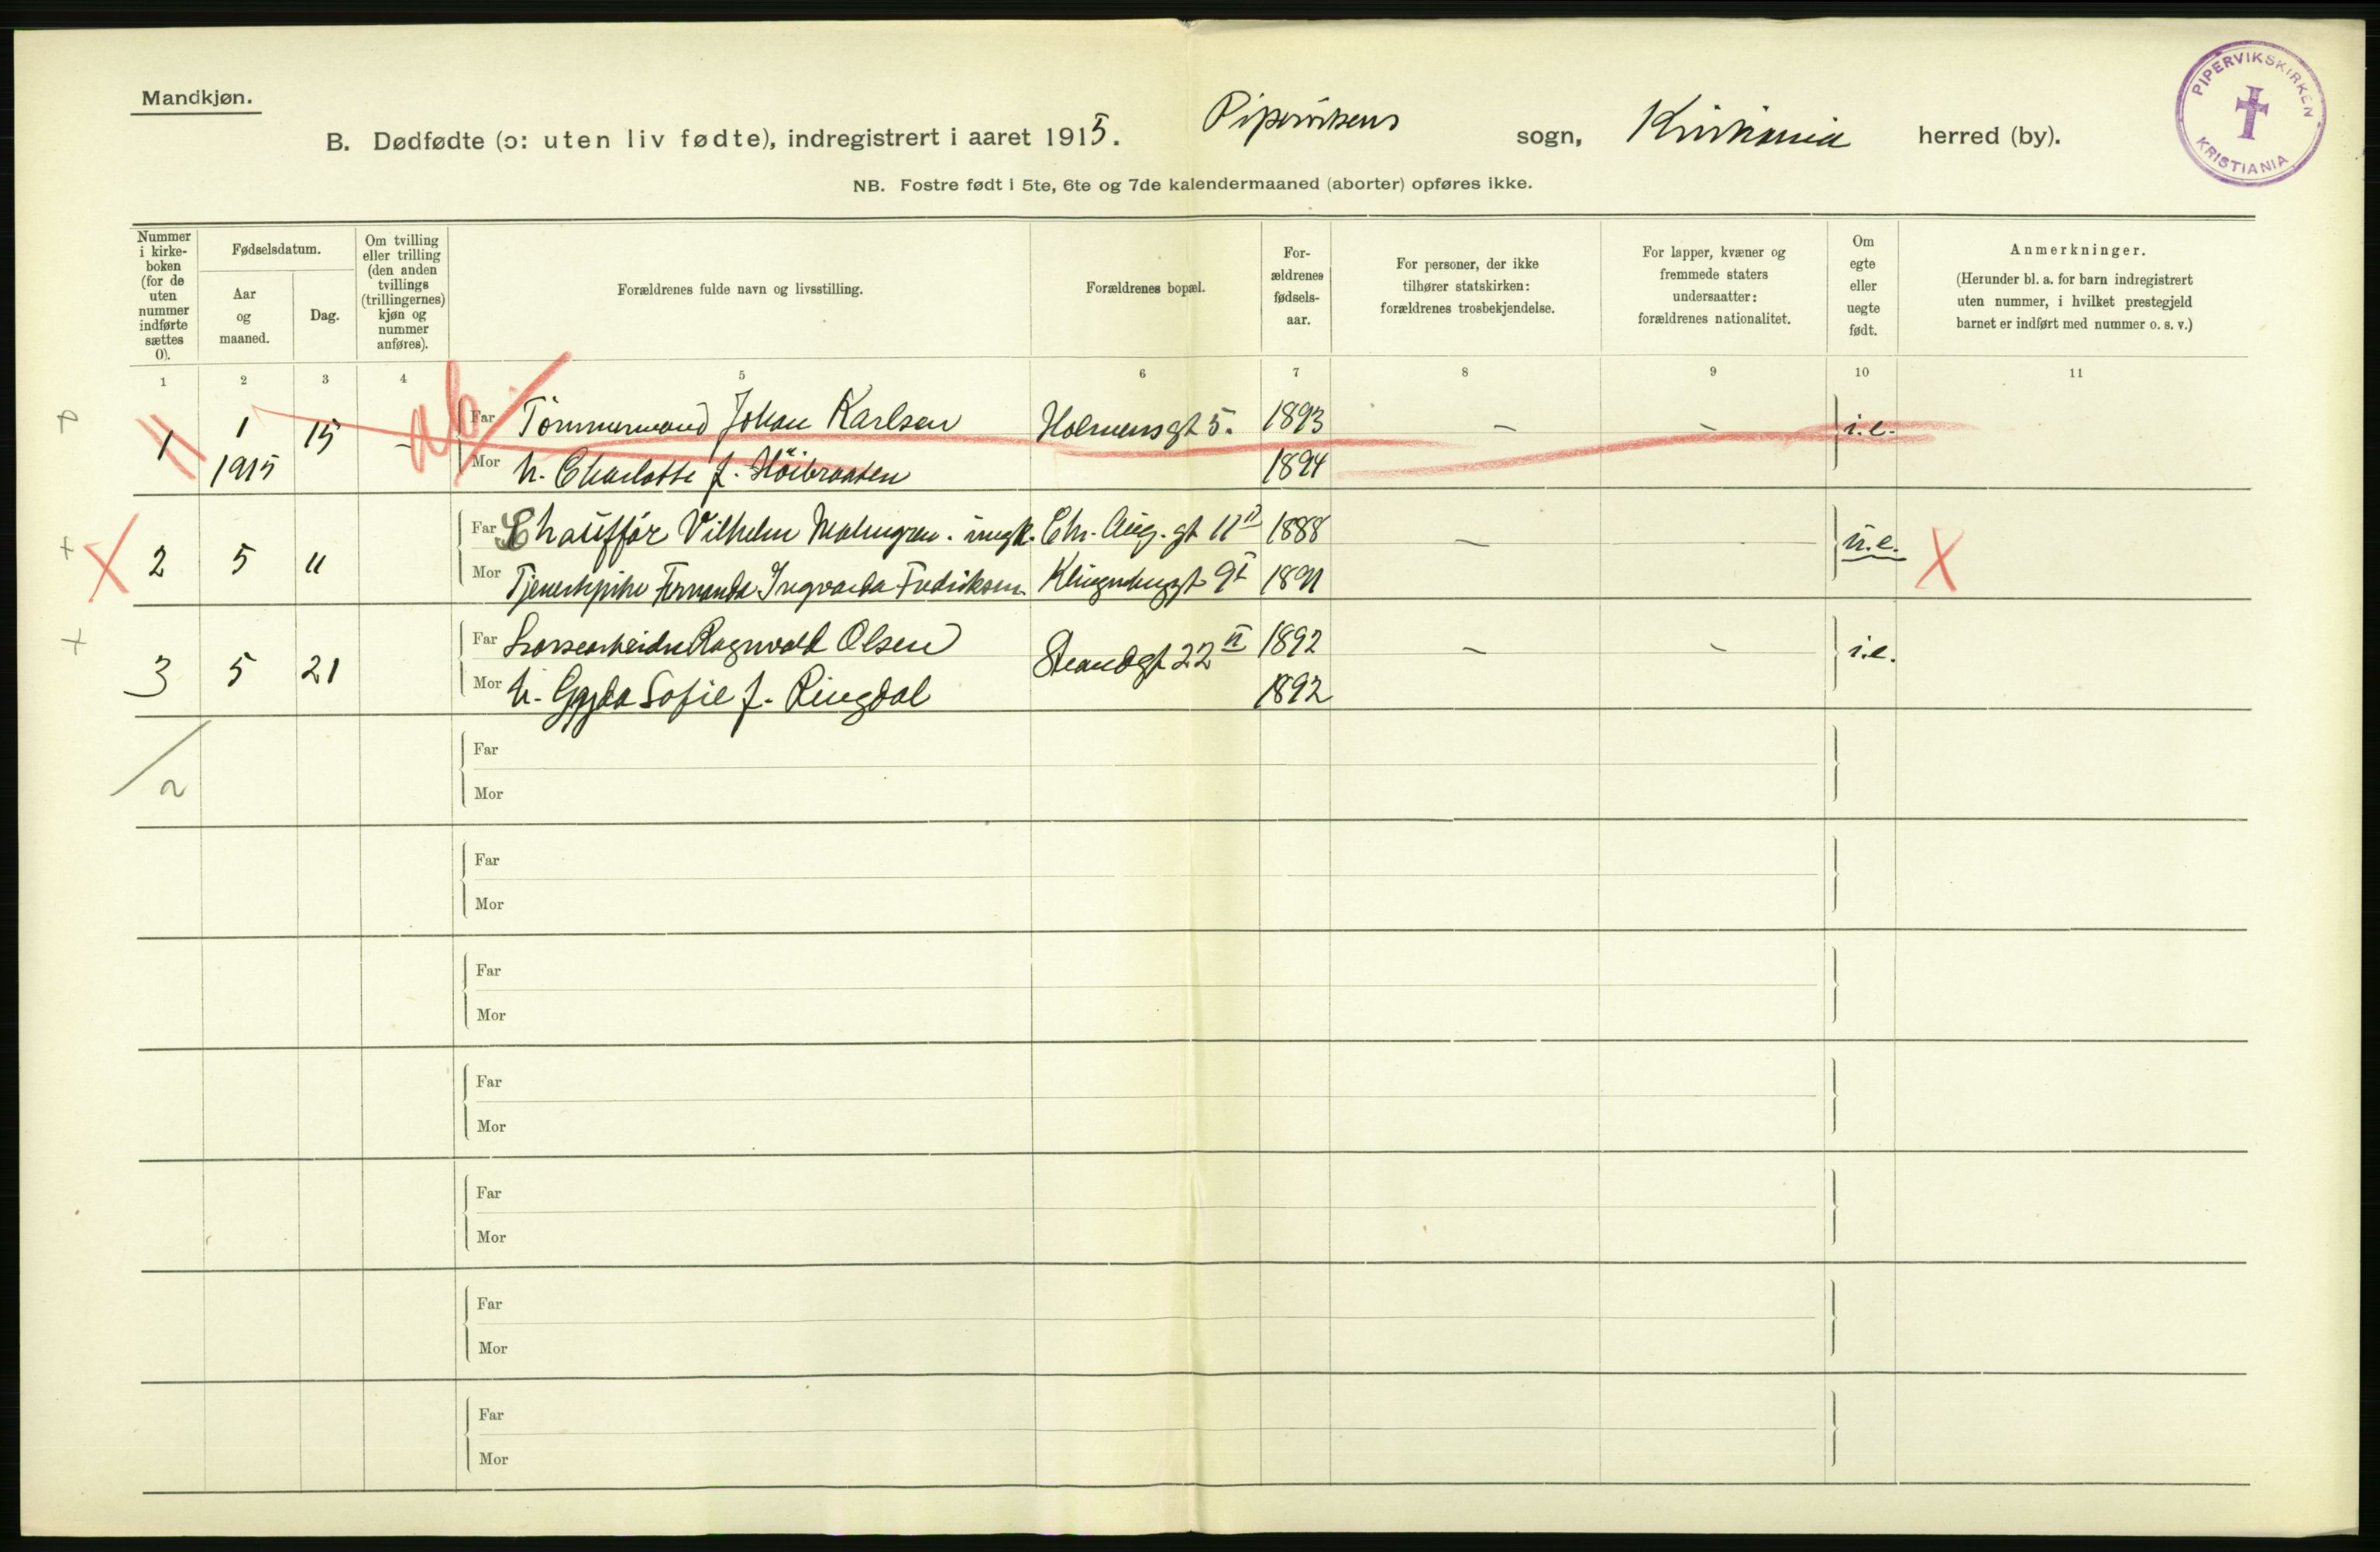 Mandkjøn.
B. Dødfødte (ɔ: uten liv fødte), indregistrert i aaret 1915. Pipervikens sogn, Kristiania herred (by).
PIPERVIKSKIRKEN
KRISTIANIA
NB. Fostre født i 5te, 6te og 7de kalendermaaned (aborter) opføres ikke.
Nummer
i kirke-
boken
(for de
uten
nummer
indførte
sættes
0).
Fødselsdatum.
Aar
og
maaned.
Dag.
Om tvilling
eller trilling
(den anden
tvillings
(trillingernes)
kjøn og
nummer
anføres).
Forældrenes fulde navn og livsstilling.
Forældrenes bopæl.
For-
ældrenes
fødsels-
aar.
For personer, der ikke
tilhører statskirken:
forældrenes trosbekjendelse.
For lapper, kvæner og
fremmede staters
undersaatter:
forældrenes nationalitet.
Om
egte
eller
uegte
født.
Anmerkninger.
(Herunder bl. a. for barn indregistrert
uten nummer, i hvilket prestegjeld
barnet er indført med nummer o. s. v.)
1 2 3 4 5 6 7 8 9 10 11
ab
1 1 1915 15 - Far Tömmermand Johan Karlsen Holmensgt 5. 1893 - - i.e.
Mor h. Charlotte f. Höibraaten 1894
X 2 5 11 Far Chaufför Vilhelm Malmgren. ungk. Chr. Aug. gt 11 II 1888 - u.e. X
Mor Tjenestepike Fernanda Ingvarda Fredriksen Klingenbergt 9 I 1891
3 5 21 Far Ragnvald Olsen Strandgt 22 II 1892 - - i.e.
Mor h. Gyda Sofie f. Ringdal 1892
2
Far
Mor
Far
Mor
Far
Mor
Far
Mor
Far
Mor
Far
Mor
Far
Mor